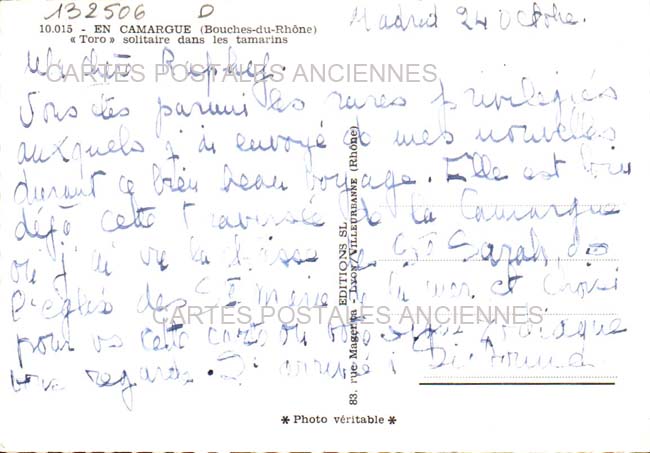 132506 D
Madrid 24 Octobre.
10.015 - EN CAMARGUE (Bouches-du-Rhône)
« Toro » solitaire dans les tamarins
CARTES POSTALES ANCIENNES
Vous êtes parmi les rares privilégiés
auxquels j'ai envoyé de mes nouvelles
durant ce bien beau voyage. Elle est loin
déjà cette traversée de la Camargue
où j'ai vu la de Ste Sarah, de
l'église des Stes Maries de la mer et choisi
pour vs cette carte où
CARTES POSTALES ANCIENNES
regarde.
EDITIONS SL
83, rue Magenta - LYON/VILLEURBANNE (Rhône)
* Photo véritable *